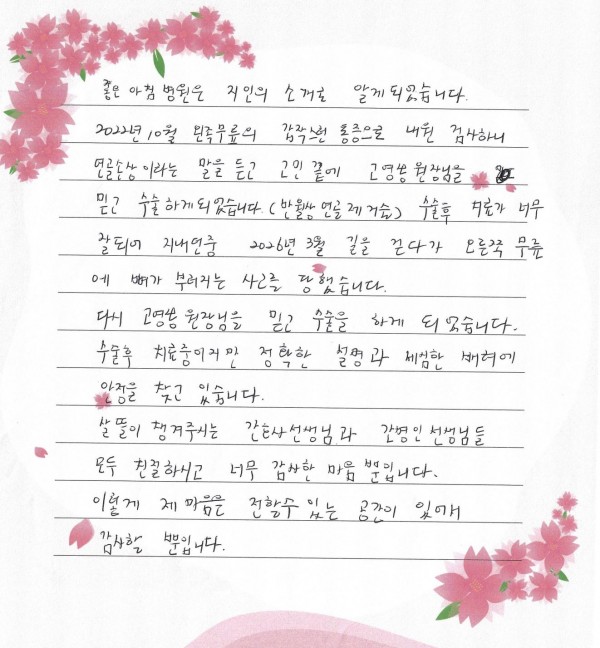 좋은 아침 병원은 지인의 소개로 알게되었습니다.
2022년 10월 왼쪽무릎의 갑작스런 통증으로 내원 검사하니
연골손상 이라는 말을 듣고 고민 끝에 고영쌍 원장님을
믿고 수술하게되었습니다.(반월상 연골 제거술) 수술후 치료가 너무
잘되어 지내던중 2026년 3월 길을 걷다가 오른쪽 무릎
에 뼈가 부러지는 사고를 당했습니다.
다시 고영쌍 원장님을 믿고 수술을 하게 되었습니다.
수술후 치료중이지만 정확한 설명과 세심한 배려에
안정을 찾고 있습니다.
살뜰이 챙겨주시는 간호사선생님과 간병인 선생님들
모두 친절하시고 너무 감사한 마음 뿐입니다.
이렇게 제 마음을 전할수 있는 공간이 있어
감사할 뿐입니다.